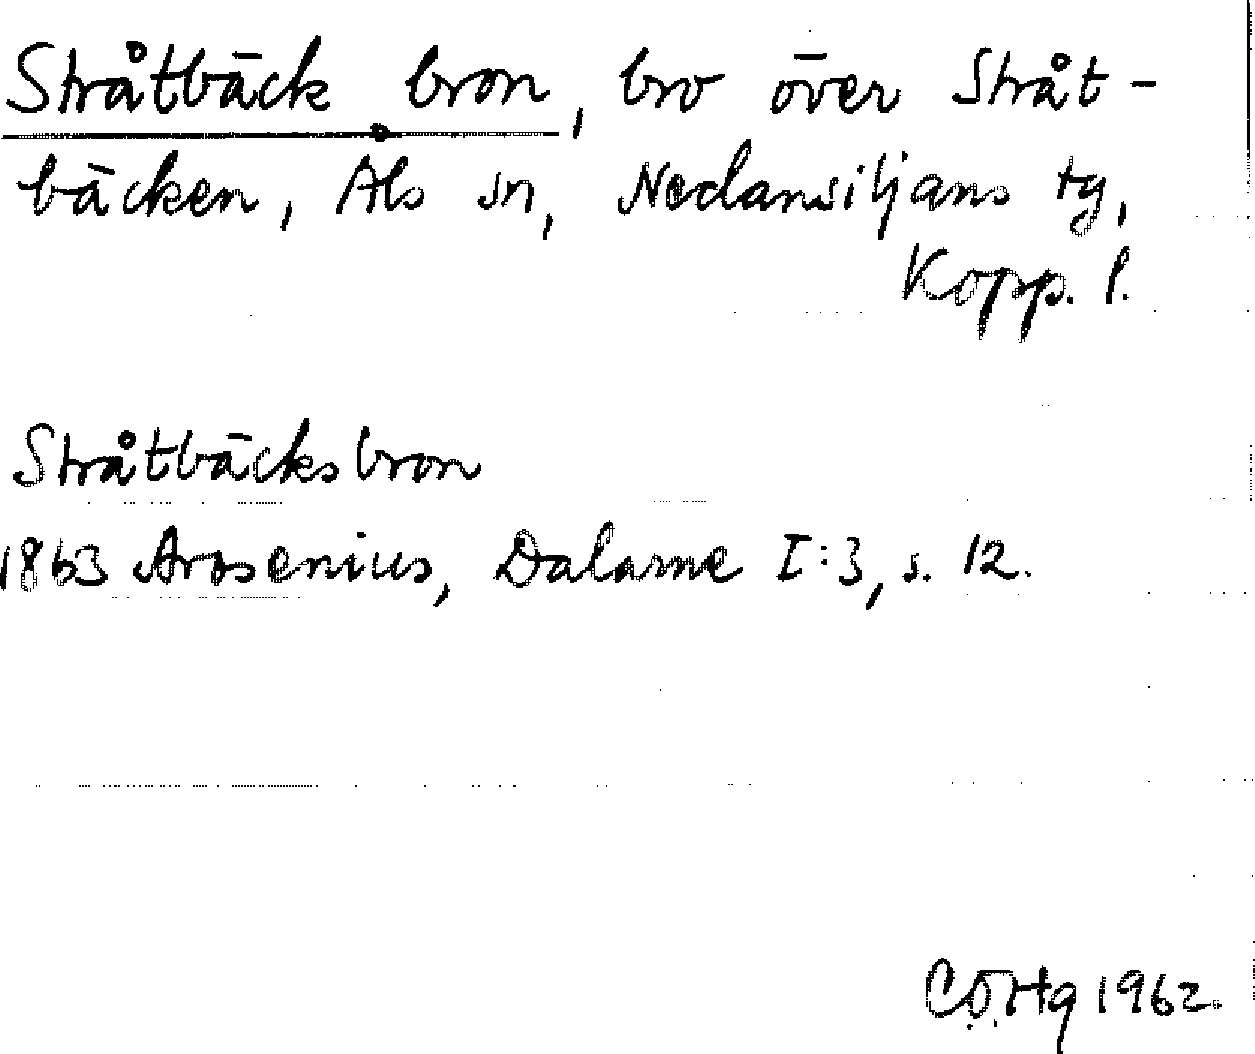 Stråtbäck bron, bro över Stråt-
bäcken, Als sn, Nedansiljans tg,
Kopp. l.
Stråtbäcksbron
1863 Arosenius, Dalarne I:3, s. 12.
C.Ö.Hg 1962.